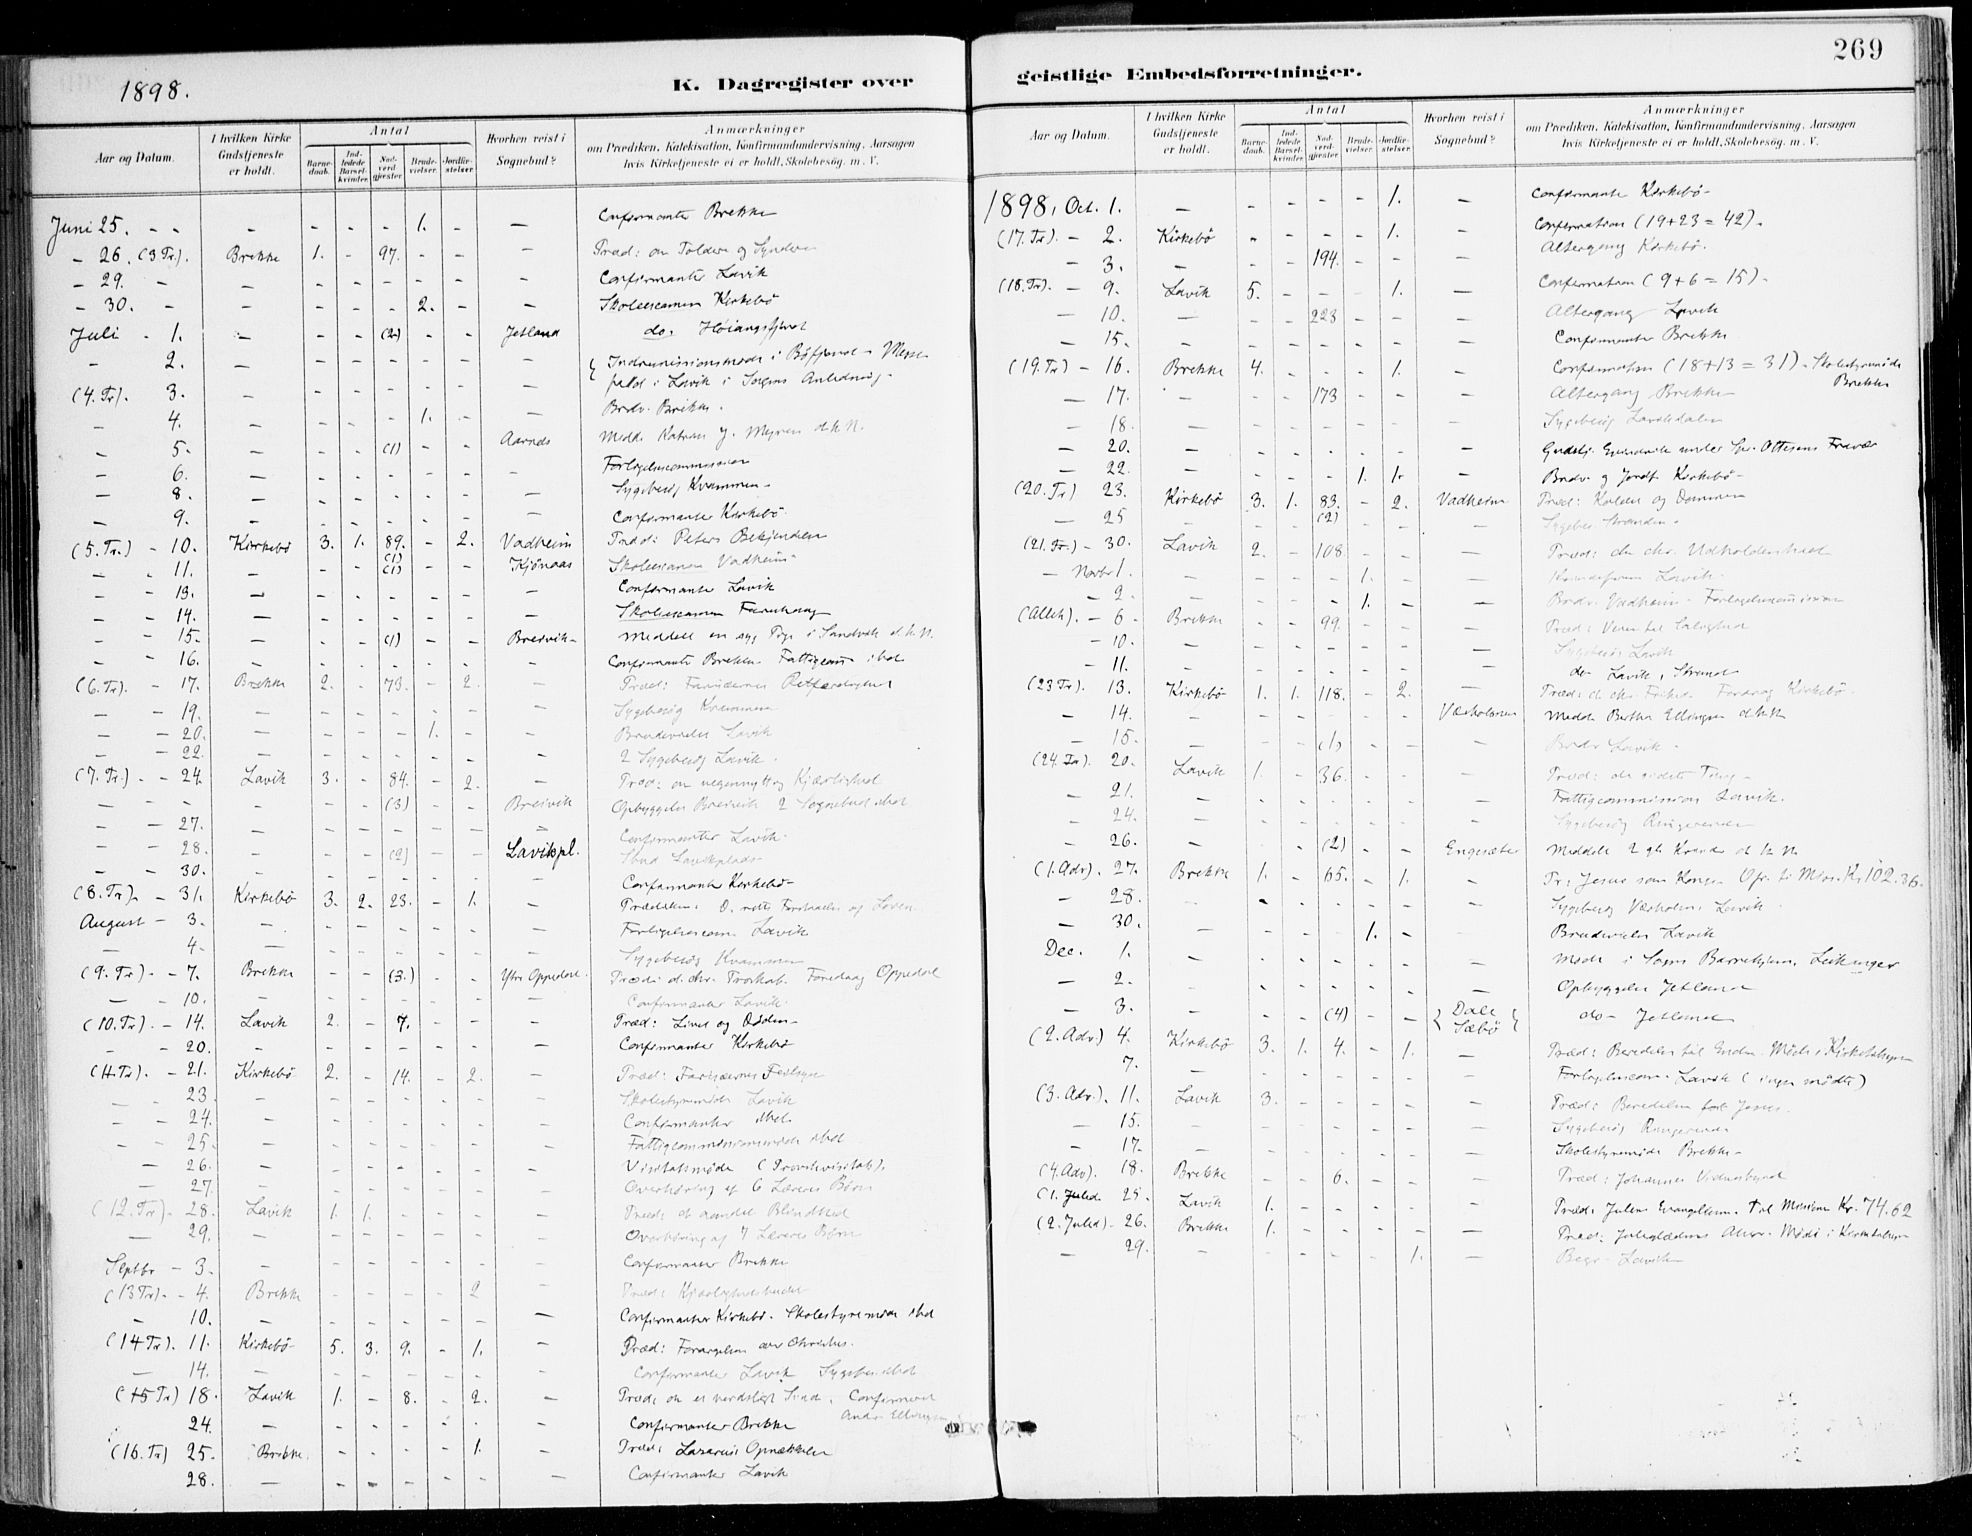 1898.
K. Dagregister over
Aar og Datum.
I hvilken Kirke Gudstjeneste er holdt.
Antal
Barnedaab.
Indledede Barselkvinder.
Nadverdgjester
Brudevielser.
Jordfæstelser.
Hvorhen reist i Sognebud?
Anmærkninger
om Prædiken, Katekisation, Konfirmandundervisning, Aarsagen
hvis Kirketjeneste ei er holdt, Skolebesøg. m. V.
Juni 25. - - - - - - - 1. - — Confirmanter Brekke
- 26. (3 Tr.). Brekke 1. - 97. - — Præd: om Toldere og Syndere
- 29. - — - - - - - Confirmanter Lavik
- 30. - — - - - 2. - Skoleexamen Kirkebö
Juli - 1. — - - (2) - - Jetland do. Höiangsfjord
- 2. — - - - - - Indremissionsmöde i Böfjord - Messe-
(4. Tr). 3. - - - - - - — fald i Lavik i Sogns Anledning.
- 4. — - - - 1. - — Brdv. Brekke.
- 5. — - - (1) - - Aarnes Medd. Katrine J. Myren d. h. N.
- 6. — - - - - - - Forligelsescommission
- 8. — - - - - - — Sygebesög Kvammen
- 9. — - - - - - — Confirmanter Kirkebö
(5. Tr.) - 10. Kirkebö 3. 1. 89. (1) - 2. Vadheim Præd: Peters Bekjendelse
- - 11. — - - (1) - - Kjönaas Skoleexamen Vadheim
- - 13. — - - - - - — Confirmanter Lavik
- - 14. — - - - - - — Skoleexamen
- - 15. — - - (1) - - Breivik Meddelt en syg Pige i Sandvik d. h. N.
- - 16. - - - - - — Confirmanter Brekke Fattigcom ibid
(6. Tr). - 17. Brekke 2. - 73. - 2. — Præd: Farisæernes Retfærdighed
- - 19. — - - - - - — Sygebesög Kvammen
- - 20. — - - - 1. - — Brudevielse Lavik
- - 22. — - - - - - - 2 Sygebesög Lavik.
(7. Tr.) - - 24. Lavik 3. - 84. - 2. — Præd: om uegennyttig Kjærlighed
- - - - - - (3) - - Breivik Opbyggelse Breivik 2 Sognebud ibid
- - 27. — - - - - - — Confirmanter Lavik.
- - 28. — - - (2) - - Lavikpl. Sbud Lavikplads
- - 30. - - - - - — Confirmanter Kirkebö
(8. Tr). - 31. Kirkebö 3. 2. 23. - 1. — Prædiken: D. rette Forstaaelse af Loven
August - 3. — - - - - - — Forligelsescom. Lavik
- 4. — - - - - - — Sygebesög Kvammen
(9. Tr). - 7. Brekke - - (3.) - - Ytre Oppedal. Præd: d. chr. Troskab. Foredrag Oppedal
- - 10. — - - - - - — Confirmanter Lavik.
(10. Tr). - 14. Lavik 2. - 7. - - — Præd: Livet og Döden
- - 20. — - - - - - — Confirmanter Kirkebö
(11. Tr). - 21. Kirkebö 2. - 14. - 2. — Præd: Farisæernes
- - 23. — - - - - - — Skolestyremöde Lavik
- - 24. — - - - - - — Confirmanter ibid.
- - 25. — - - - - - — Fattigcommissionsmöde ibid
- 26. — - - - - - — Visitatsmöde (Provstevisitats).
- 27. — - - - - - — Overhöring af 6 Læreres Börn
(12. Tr). - 28. Lavik 1. 1. - - - — Præd: d. aandel. Blindhed
- 29. — - - - - - — Overhöring af 7 Læreres Börn
Septbr - 3. — - - - - - — Confirmanter Brekke
(13 Tr). - 4. Brekke - - - - 2 — Præd: Kjærlighedsbudet
- 10. — - - - - - — Confirmanter Kirkebö. Skolestyremöde ibid
(14 Tr). 11. Kirkebö 5. 3. 9. - 1. — Præd: Forargelsen over Christus.
- 14. — - - - - - Confirmanter Lavik Sygebes. ibid
(15 Tr) 18. Lavik 1. - 8. - 2. — Præd: om et verdsligt Sind. Confirmerede
Andr. Ellingsen
24. — - - - - - — Confirmanter Brekke
(16. Tr) 25. Brekke. - - - - 1. — Præd: Lazarus' Opvækkelse
28. — - - - - - — Confirmanter Lavik
269
geistlige Embedsforretninger.
Aar og Datum.
I hvilken Kirke Gudstjeneste er holdt.
Antal
Barnedaab.
Indledede Barselkvinder.
Nadverdgjester
Brudevielser.
Jordfæstelser.
Hvorhen reist i Sognebud?
Anmærkninger
om Prædiken, Katekisation, Konfirmandundervisning, Aarsagen
hvis Kirketjeneste ei er holdt, Skolebesøg. m. V.
1898, Oct. 1. — - - - - 1. — Confirmanter Kirkebö
(17. Tr). - 2. Kirkebö - - - - 1. — Confirmation (19+23=42).
- 3. — - - 194. - - — Altergang Kirkebö.
(18. Tr). - 9. Lavik 5. - - - 1. — Confirmation (9+6=15).
- 10. — - - 223 - - — Altergang Lavik
- 15. — - - - - - — Confirmanter Brekke
(19. Tr) - 16. Brekke 4. - - - 1. — Confirmation (18+13=31). Skolestyremöde
Brekke
- 17. — - - 173 - - — Altergang Brekke
- 18. — - - - - - — Sygebesög
- 20. — - - - - - - Gudstj. Evindvik under Spr. Ottesens Fravær
- 22. — - - - 1. 1. - Brdv. og Jordf. Kirkebö
(20. Tr) 23. Kirkebö 3. 1. 83. - 2. Vadheim Præd: Kaldet og Dommen
- 25 - - - (2) - - — Sygebes. Stranden.
(21. Tr.) - 30. Lavik 2. - 108. - - — Præd: den chr. Udholdenhed
- Novbr 1. — - - - 1. - — Lavik.
- 2. - - - - 1. - — Brdv. Vadheim - Forligelsescommission
(Alleh). - 6. Brekke - - 99. - - — Præd: Veien til Salighed
- 10. — - - - - - Sygebesög Lavik
- 11. — - - - - - — do Lavik, Strand
(23 Tr). 13. Kirkebö 1. 1. 118. - 2. — Præd: d. chr. Frihed Foredrag Kirkebö.
- 14. — - - - - - Væsholmen Medd. Berthe Ellingsen d. h. N
- 15. — - - (1) - - — Brdv. Lavik.
(24. Tr). 20. Lavik 1. - 36. - - - Præd: de sidste Ting
- 21. — - - - - - — Fattigcommission Lavik.
- 24. - - - - - - — Sygebesög Ringereide
- 26. — - - (2) - - Engesæter Meddelt 2 gl. Kvinder d. h. N.
(1. Adv). 27. Brekke 1. - 65. - 1. — Pr: Jesus som Konge Ofr. t. Miss. Kr. 102.36.
- 28. — - - - - - — Sygebesög Væsholmen, Lavik
- 30. — - - - 1. - - Brudevielse Lavik
Dec. 1. — - - - - - — Möde i Sogns Barnehjem, Leikanger
- 2. - - - - - - — Opbyggelse Jetland
- 3. - - - (4) - - { Dale Sæbö } do - Jetland
(2. Adv.) 4. Kirkebö 3. 1. 4. - 1. — Præd: Möde i Kirketilsyn
7. — - - - - - Forligelsescom. Lavik (ingen mödte)
(3. Adv.). 11. Lavik 3. - - - - — Præd: Beredelse for Jesus.
- 15. — - - - - - — Sygebesög Ringereide
- 17. — - - - - - — Skolestyremöde Brekke
(4. Adv). 18. Brekke - - 6. - - — Præd: Johannes Vidnesbyrd
(1. Juled. 25. Lavik 1. - - - - — Præd: Julens Evangelium. Til Missionen Kr. 74.62
(2. Juled) - 26. Brekke 1. - - - - — Præd: Juleglædens Möde i Kirketilsyn
- 29. — - - - - 1. — Begr. Lavik